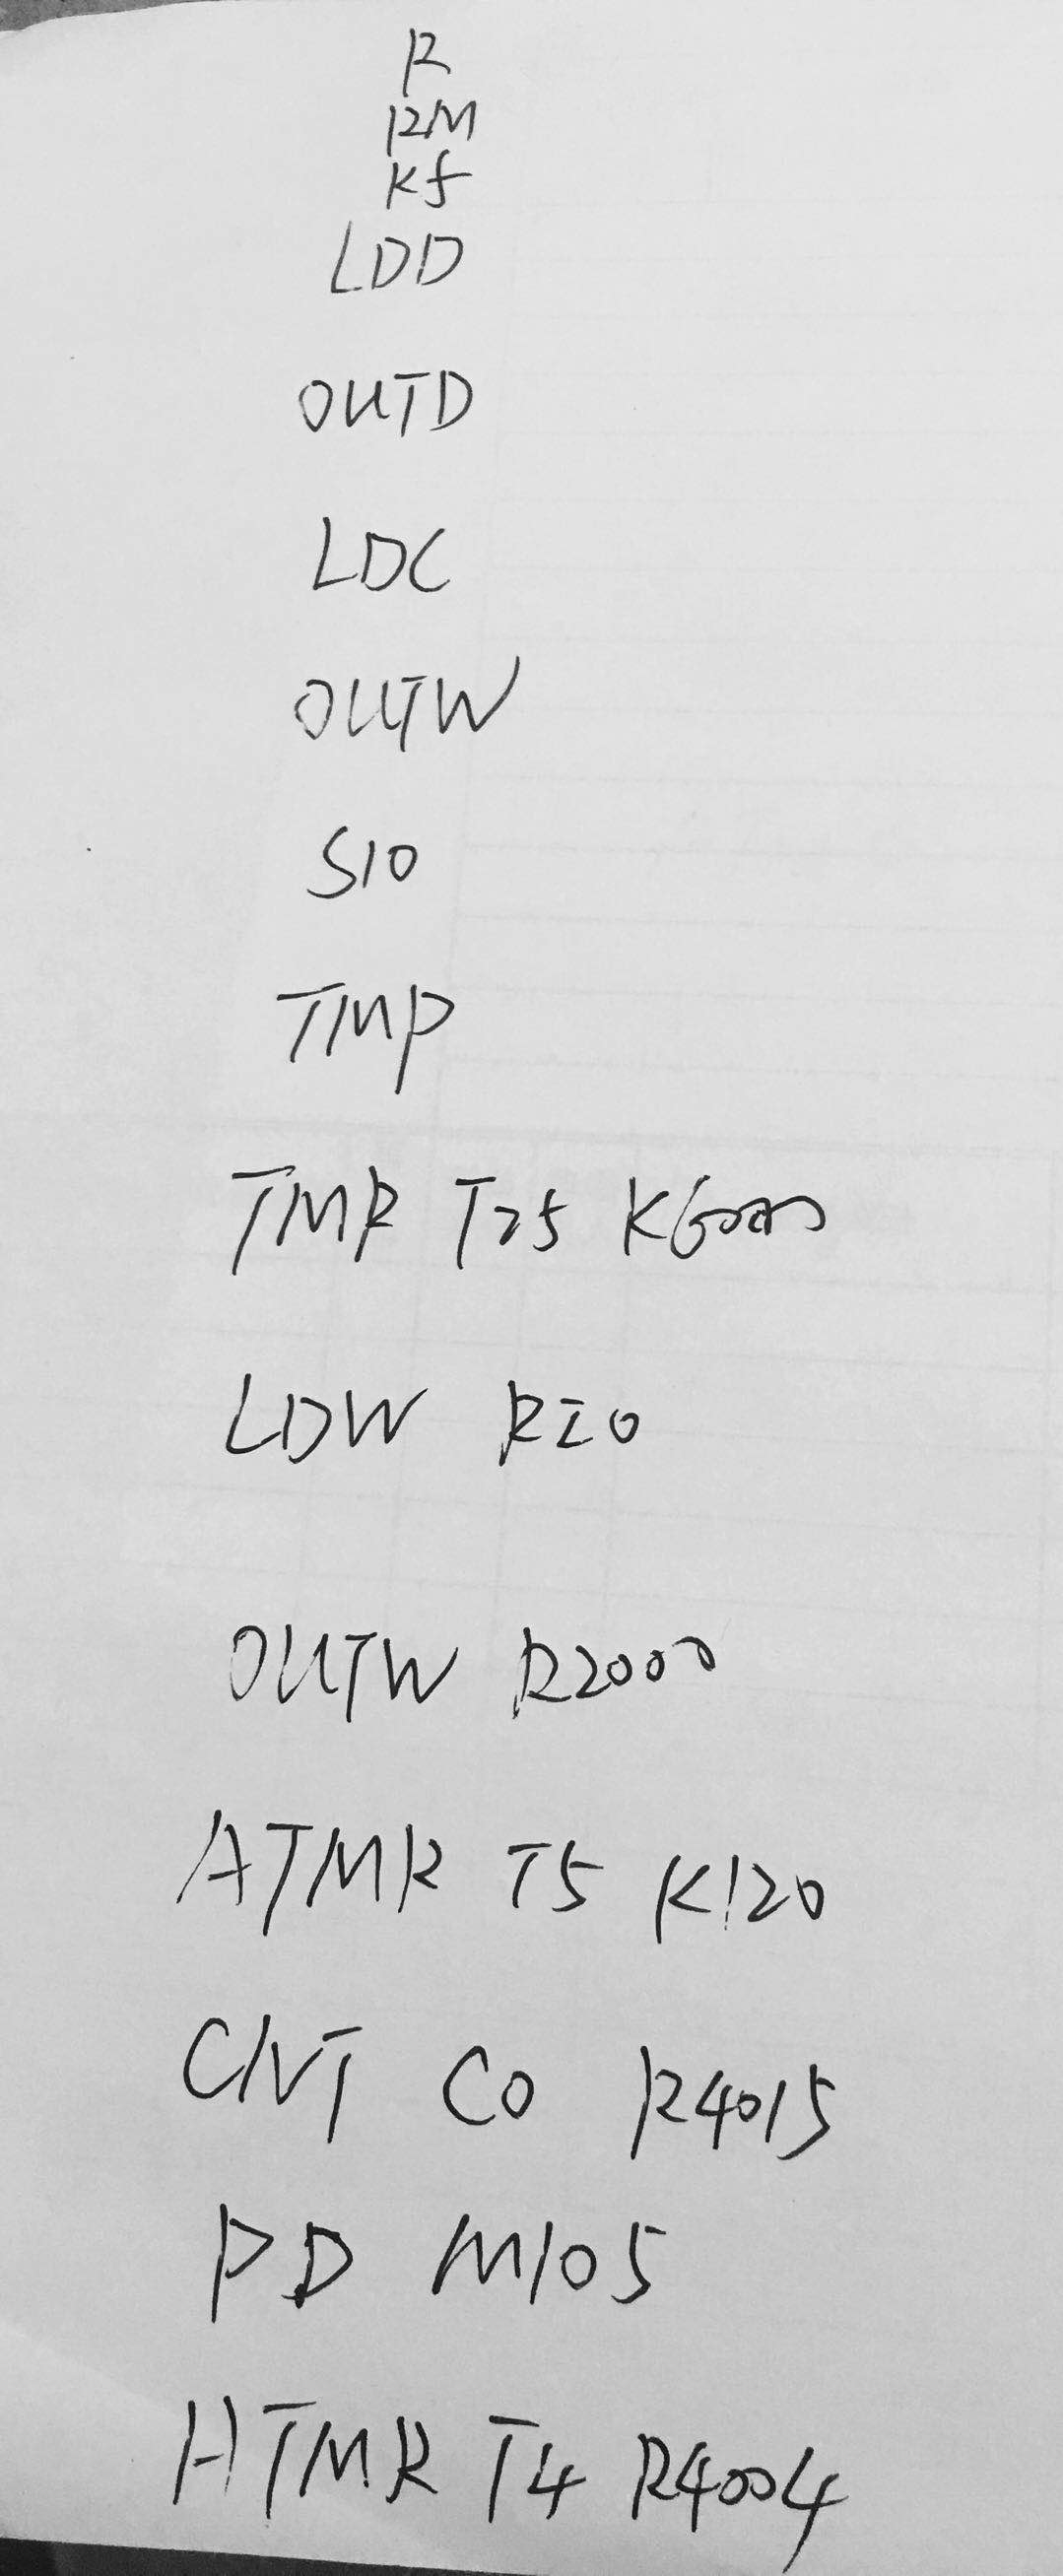 R
RM
Kf
LDD
OUTD
LDC
OUTW
S10
TMP
TMR T25 K6000
LDW RI0
OUTW R2000
ATMR T5 K120
CNT C0 R4015
PD M105
HTMR T4 R4004